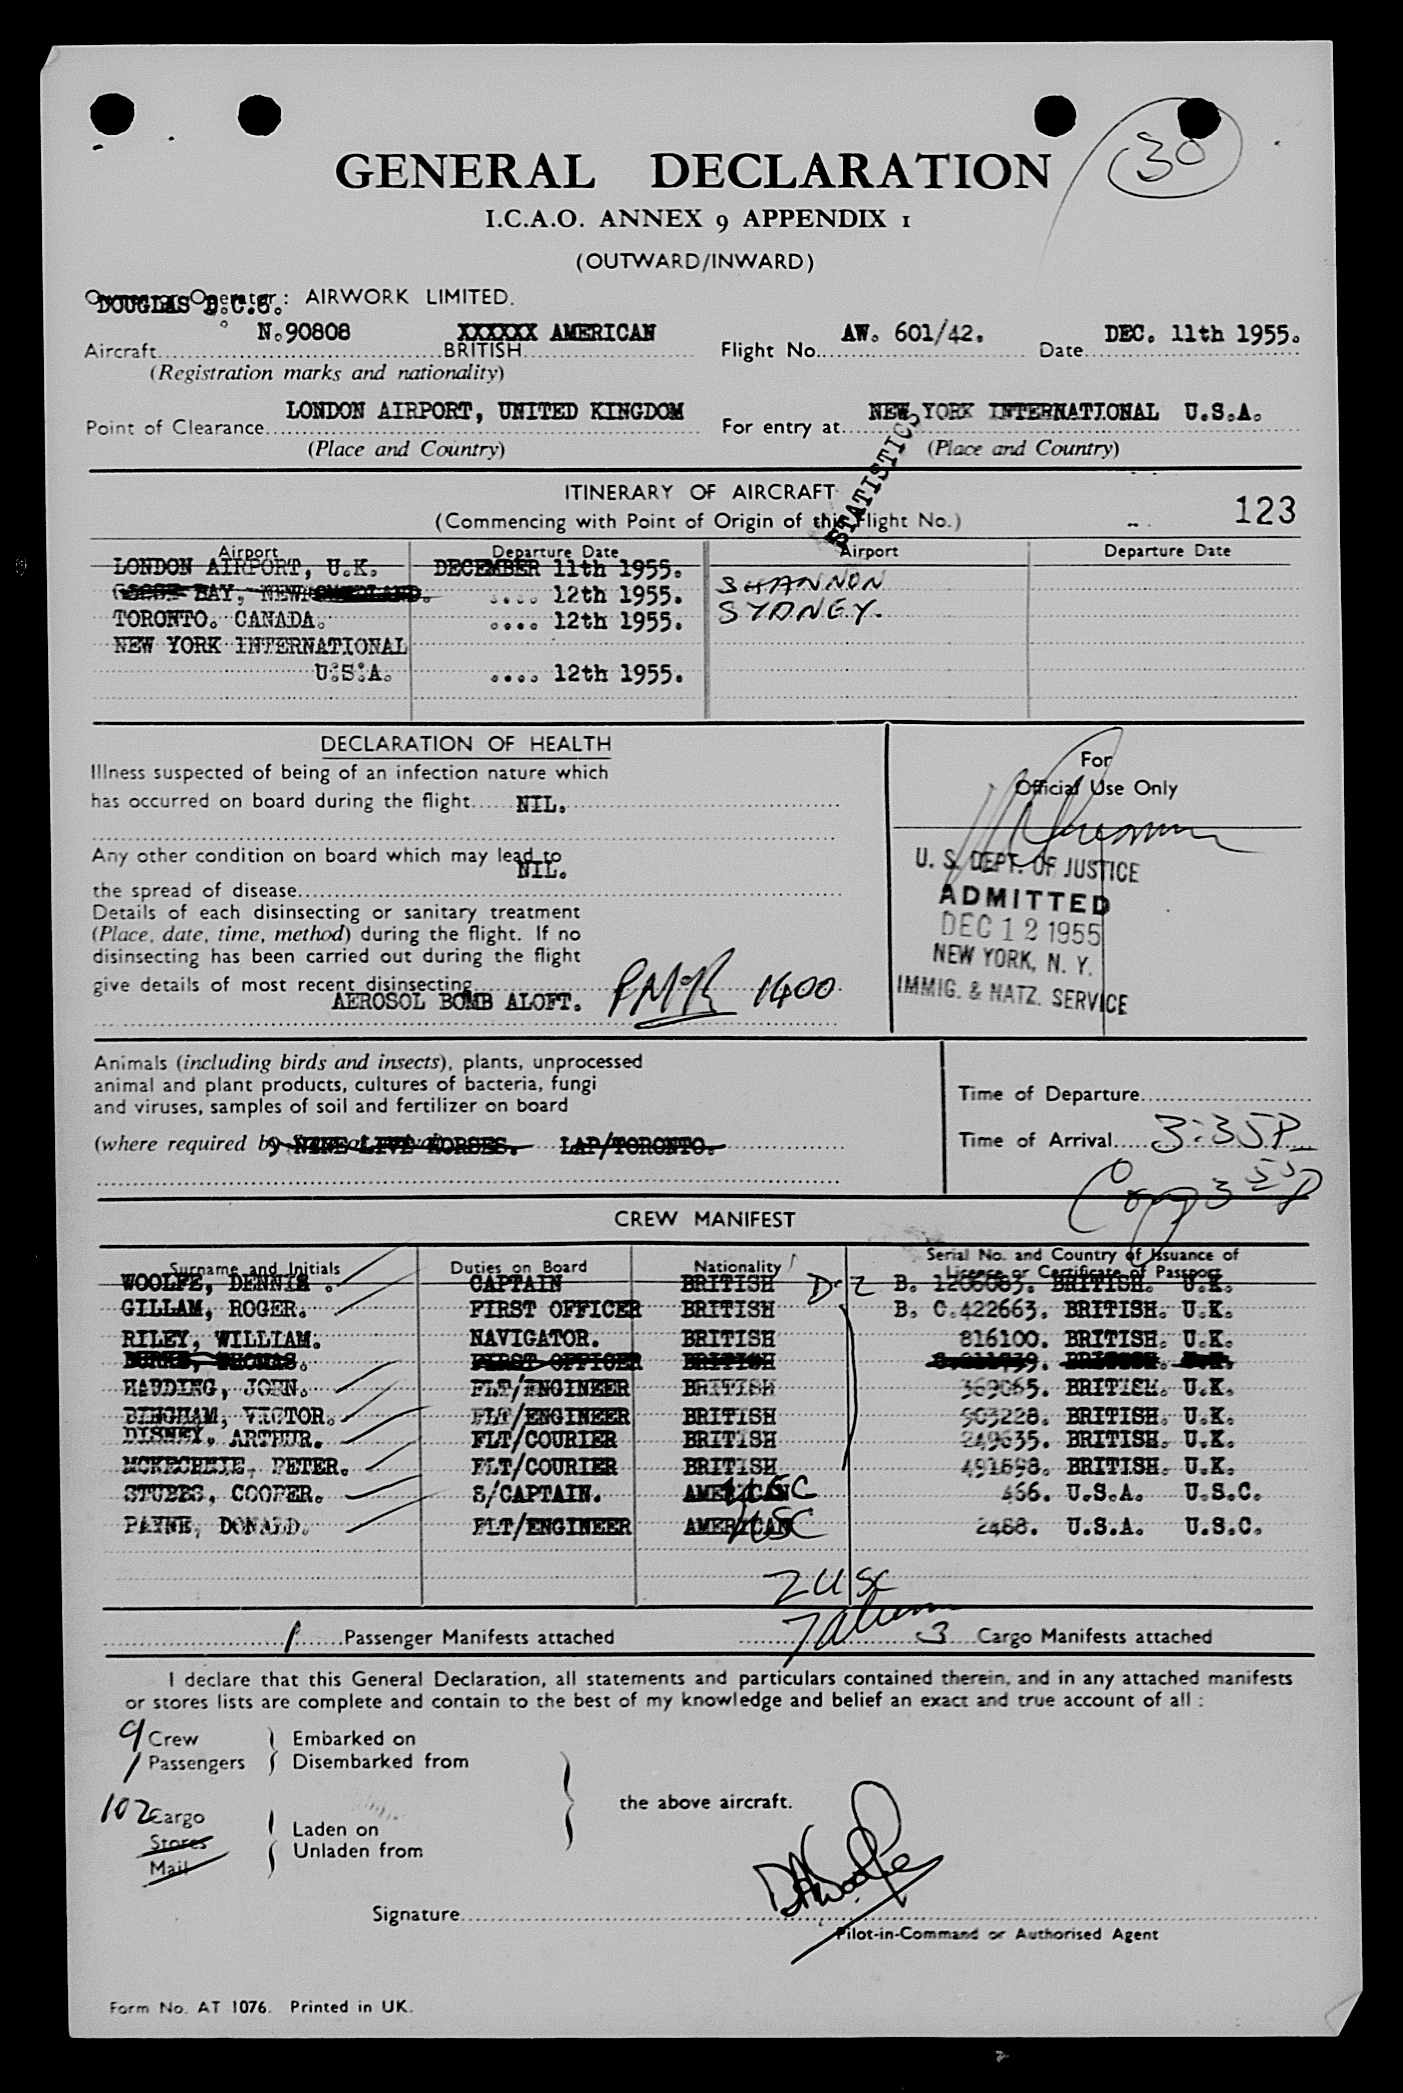 30
GENERAL DECLARATION
I.C.A.O. ANNEX 9 APPENDIX 1
(OUTWARD/INWARD)
Owner or Operator: AIRWORK LIMITED.
DOUGLAS D.C.6.
N.90808 XXXXXX AMERICAN AW. 601/42. DEC. 11th 1955.
Aircraft BRITISH Flight No. Date
(Registration marks and nationality)
LONDON AIRPORT, UNITED KINGDOM NEW YORK INTERNATIONAL U.S.A.
Point of Clearance For entry at
(Place and Country) (Place and Country)
STATISTICS
ITINERARY OF AIRCRAFT
(Commencing with Point of Origin of this Flight No.) 123
Airport Departure Date Airport Departure Date
LONDON AIRPORT, U.K. DECEMBER 11th 1955.
SHANNON
GOOSE BAY, NEWFOUNDLAND. .... 12th 1955.
TORONTO. CANADA. .... 12th 1955. SYDNEY.
NEW YORK INTERNATIONAL
U.S.A. .... 12th 1955.
DECLARATION OF HEALTH
Illness suspected of being of an infection nature which
has occurred on board during the flight NIL.
Any other condition on board which may lead to
NIL.
the spread of disease
Details of each disinsecting or sanitary treatment
(Place, date, time, method) during the flight. If no
disinsecting has been carried out during the flight
give details of most recent disinsecting
AEROSOL BOMB ALOFT. 1400
For
Official Use Only
U. S. DEPT. OF JUSTICE
ADMITTED
DEC 12 1955
NEW YORK, N. Y.
IMMIG. & NATZ. SERVICE
Animals (including birds and insects), plants, unprocessed
animal and plant products, cultures of bacteria, fungi
and viruses, samples of soil and fertilizer on board
(where required by
9 NINE LIVE HORSES. LAP/TORONTO.
Time of Departure
Time of Arrival 3:35P
3 55P
CREW MANIFEST
Surname and Initials Duties on Board Nationality Serial No. and Country of Issuance of
Licence or Certificate of Passport
WOOLFE, DENNIS . CAPTAIN BRITISH D-2 B. 1206083. BRITISH. U.K.
GILLAM, ROGER. FIRST OFFICER BRITISH B. C.422663. BRITISH. U.K.
RILEY, WILLIAM. NAVIGATOR. BRITISH 816100. BRITISH. U.K.
THOMAS. FIRST OFFICER BRITISH BRITISH. U.K.
HARDING, JOHN. FLT/ENGINEER BRITISH 369065. BRITISH. U.K.
BINGHAM, VICTOR. FLT/ENGINEER BRITISH 903228. BRITISH. U.K.
DISNEY, ARTHUR. FLT/COURIER BRITISH 249635. BRITISH. U.K.
MCKECHNIE, PETER. FLT/COURIER BRITISH 491698. BRITISH. U.K.
STUBBS, COOPER. S/CAPTAIN. AMERICAN USC 466. U.S.A. U.S.C.
PAYNE, DONALD. FLT/ENGINEER AMERICAN USC 2468. U.S.A. U.S.C.
2 USC
7 Alien
1 Passenger Manifests attached 3 Cargo Manifests attached
I declare that this General Declaration, all statements and particulars contained therein, and in any attached manifests
or stores lists are complete and contain to the best of my knowledge and belief an exact and true account of all :
9 Crew Embarked on
1 Passengers Disembarked from
the above aircraft.
102 Cargo Laden on
Stores Unladen from
Mail
DAWoolfe
Signature
Pilot-in-Command or Authorised Agent
Form No. AT 1076. Printed in UK.